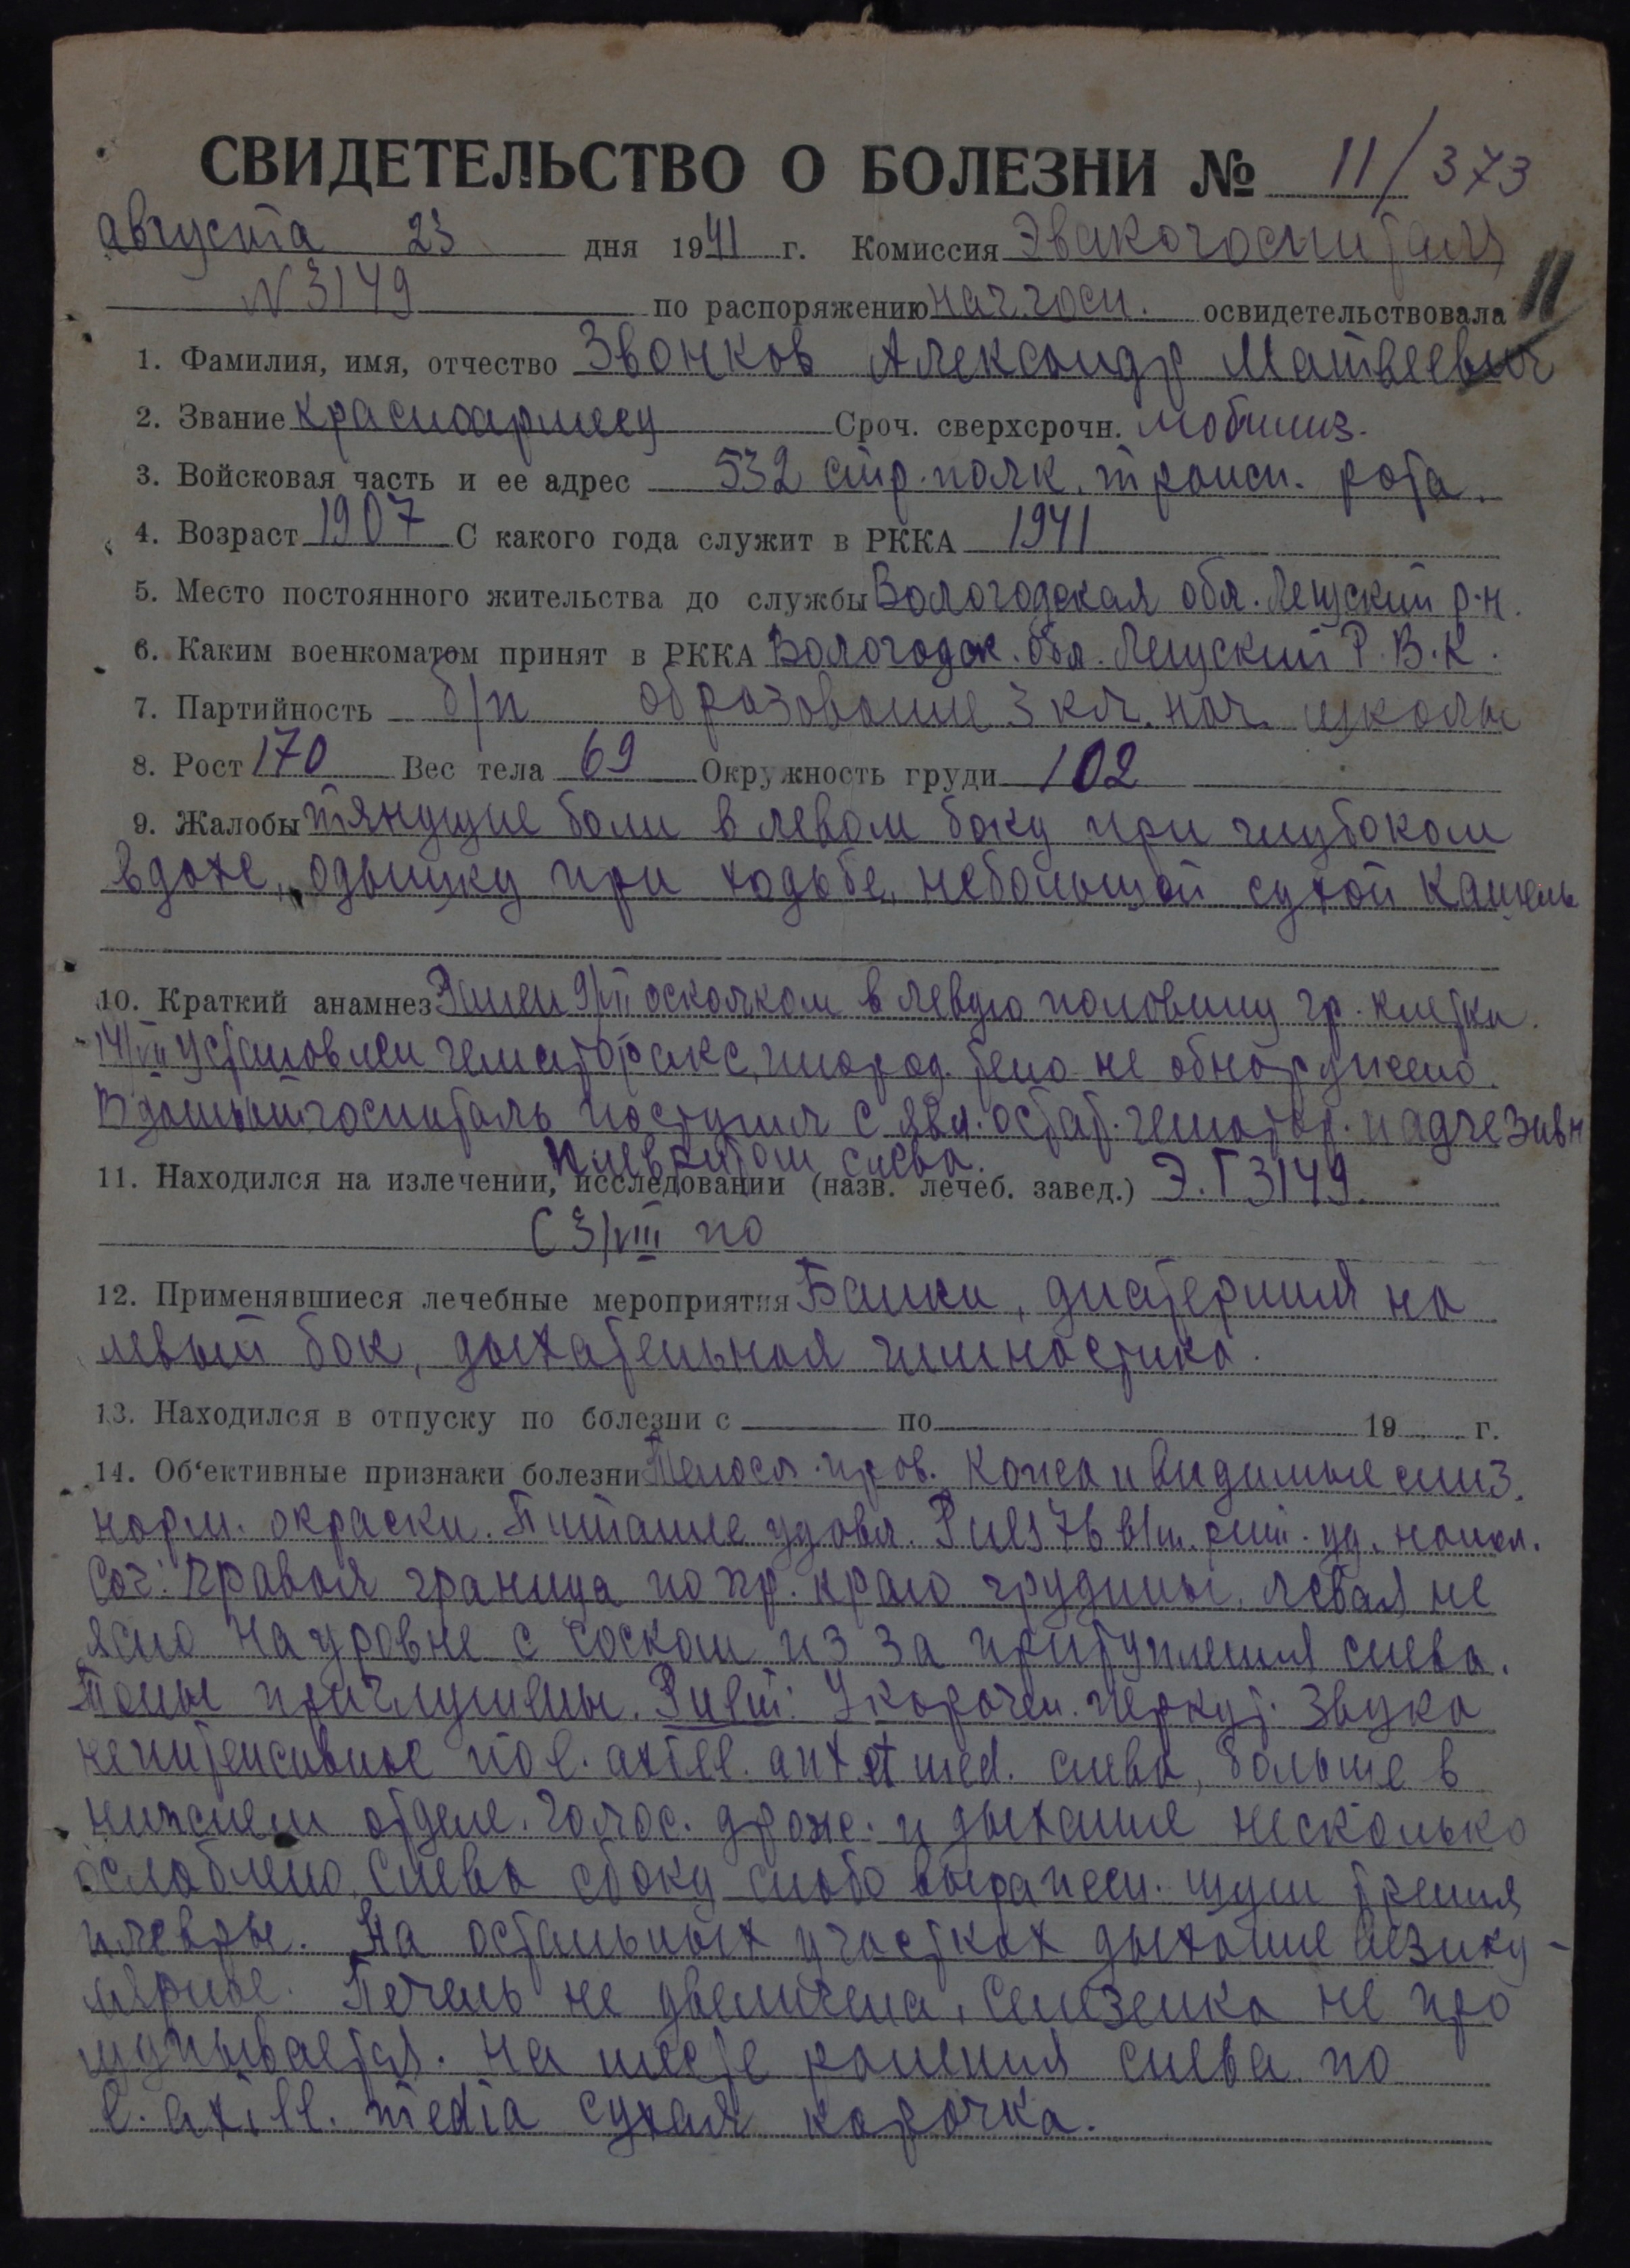 СВИДЕТЕЛЬСТВО О БОЛЕЗНИ № 11/373
августа 23 дня 1941 г. Комиссия Эвакогоспиталя
N 3149 по распоряжению нач. госп. освидетельствовала 11
1. Фамилия, имя, отчество Звонков Александр Матвеевич
2. Звание красноармеец Сроч. сверхсрочн. мобилиз.
3. Войсковая часть и ее адрес 532 стр. полк. трансп. рота.
4. Возраст 1907 С какого года служит в РККА 1941
5. Место постоянного жительства до службы Вологодская обл. р-н.
6. Каким военкоматом принят в РККА Вологодск. обл. Р.В.К.
7. Партийность б/п образование 3 кл. нач. школы
8. Рост 170 Вес тела 69 Окружность груди 102
9. Жалобы тянущие боли в левом боку при глубоком
вдохе, одышку при ходьбе, небольшой сухой кашель
10. Краткий анамнез Ранен 9/VII осколком в левую половину гр. клетки.
14/VII установлен гематоракс, инород. тело не обнаружено.
В данный госпиталь поступил с явл. остат. гематор. и адгезивн
плевритом слева.
11. Находился на излечении, исследовании (назв. лечеб. завед.) Э.Г 3149.
С 3/VIII по
12. Применявшиеся лечебные мероприятия Банки, диатермия на
левый бок, дыхательная гимнастика.
13. Находился в отпуску по болезни с по 19 г.
14. Об'ективные признаки болезни Телосл. прав. Кожа и видимые слиз.
норм. окраски. Питание удовл. Puls 76 в 1м. ритм. уд. напол.
Cor: правая граница по пр. краю грудины, левая не
ясно на уровне с соском из за притупления слева.
Тоны приглушены. Pulm: Укорочен. перкут. звука
неинтенсивное по l. axill. ant et med. слева, больше в
нижнем отделе. Голос. дрож. и дыхание несколько
ослаблено. Слева сбоку слабо выражен. шум трения
плевры. На остальных участках дыхание везику-
лярное. Печень не увеличена, селезенка не про
щупывается. На месте ранения слева по
l. axill. media сухая корочка.